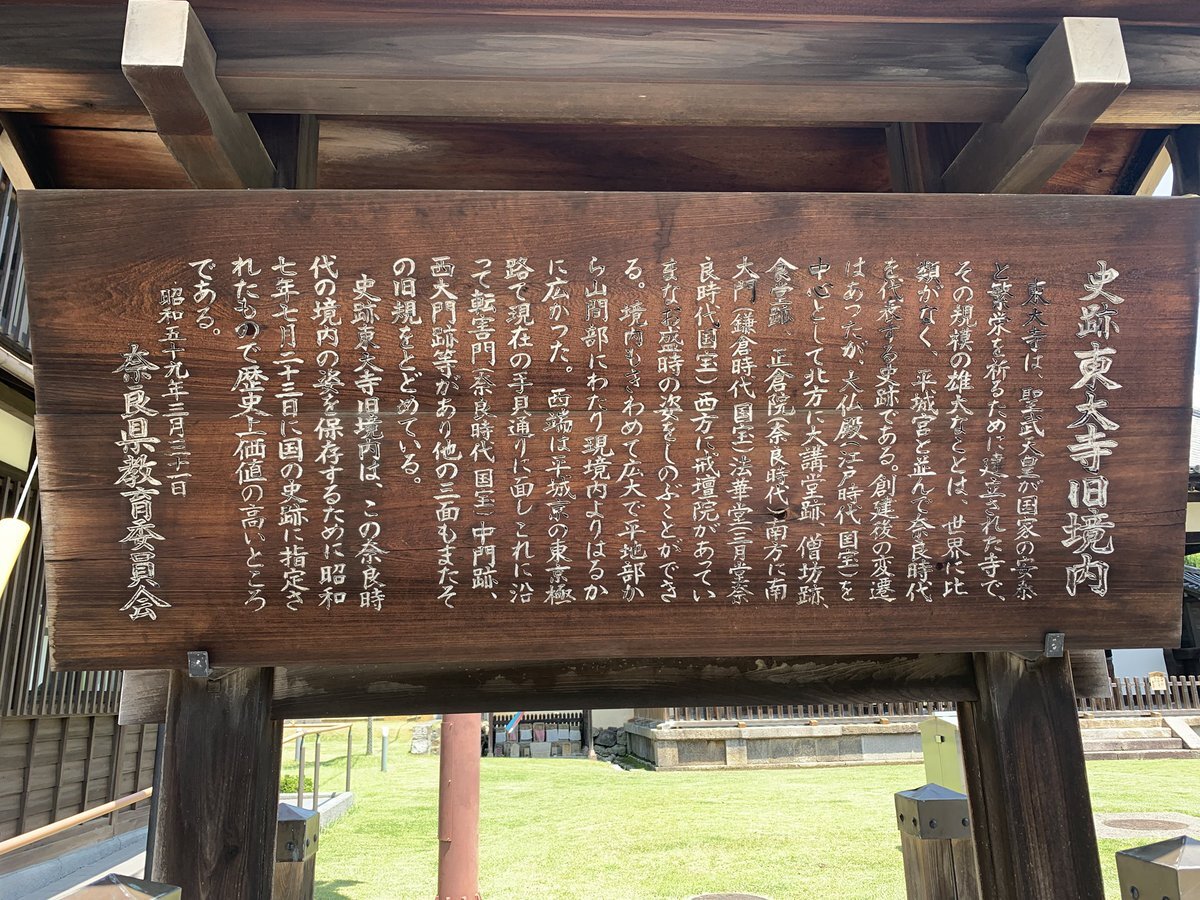 史跡東大寺旧境内
東大寺は、聖武天皇が国家の安泰
と繁栄を祈るために建立された寺で、
その規模の雄大なことは、世界に比
類がなく、平城宮と並んで奈良時代
を代表する史跡である。創建後の変遷
はあったが、大仏殿(江戸時代国宝)を
中心として北方に大講堂跡、僧坊跡、
食堂跡 正倉院(奈良時代)南方に南
大門(鎌倉時代国宝)法華堂(三月堂奈
良時代国宝)西方に戒壇院があってい
まなお盛時の姿をしのぶことができ
る。境内もきわめて広大で平地部か
ら山間部にわたり現境内よりはるか
に広かった。西端は平城京の東京極
路で現在の手貝通りに面しこれに沿
って転害門(奈良時代国宝)中門跡、
西大門跡等があり他の三面もまたそ
の旧規をとどめている。
史跡東大寺旧境内は、この奈良時
代の境内の姿を保存するために昭和
七年七月二十三日に国の史跡に指定さ
れたもので歴史上価値の高いところ
である。
昭和五十九年三月三十一日
奈良県教育委員会